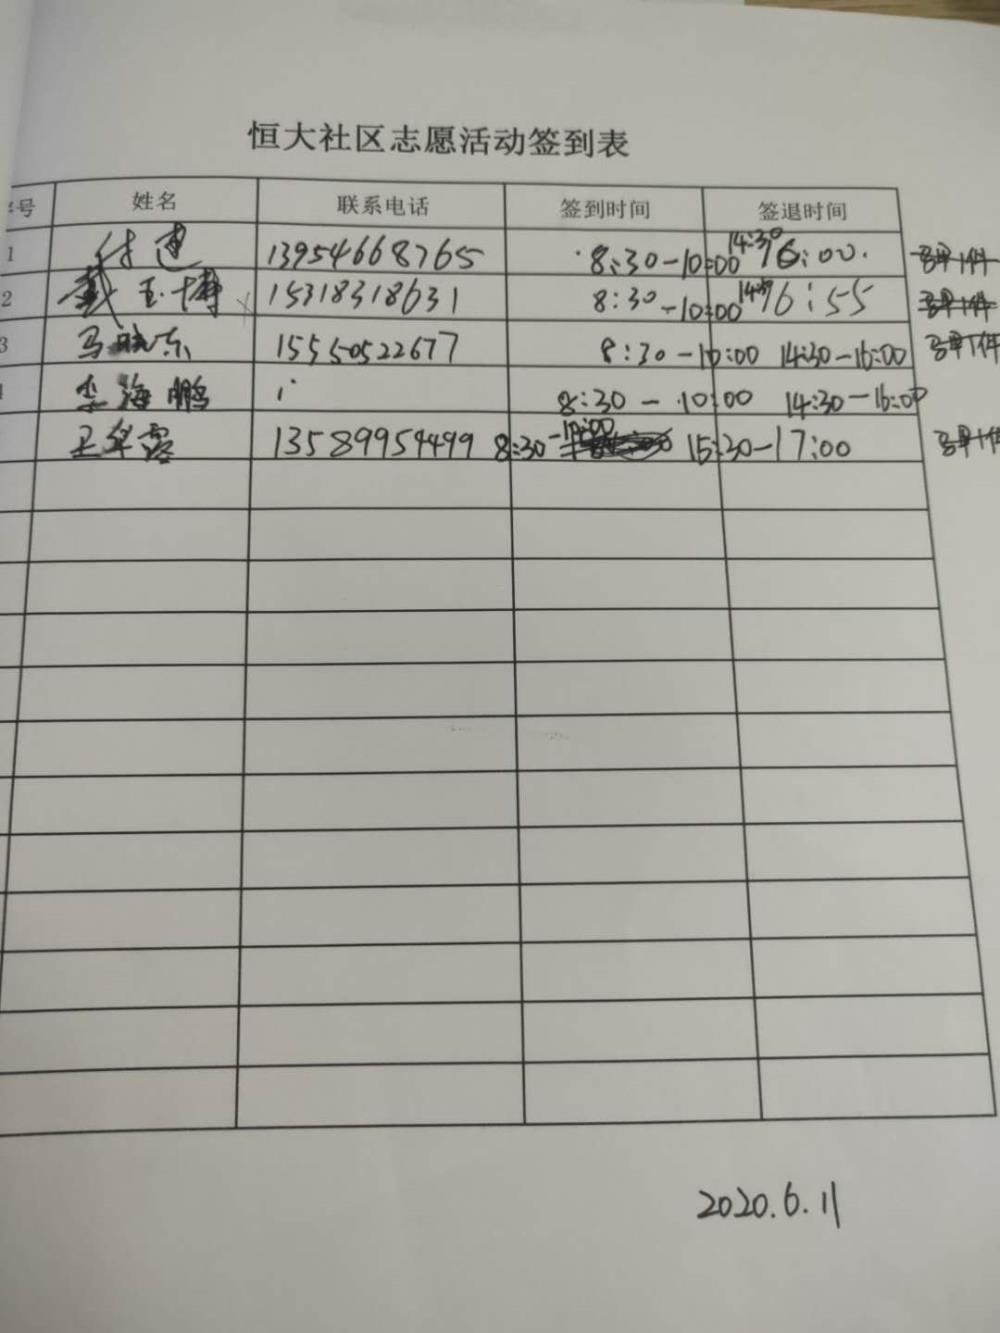 恒大社区志愿活动签到表
序号 姓名 联系电话 签到时间 签退时间
1 付建 13954668765 8:30-10:00 14:30 16:00. 马甲1件
2 戴玉博 15318318631 8:30-10:00 16:55 马甲1件
3 马晓东 15550522677 8:30-10:00 14:30-16:00 马甲1件
李海鹏 8:30-10:00 14:30-16:00
13589959499 8:30-10:00 15:30-17:00 马甲1件
2020.6.11